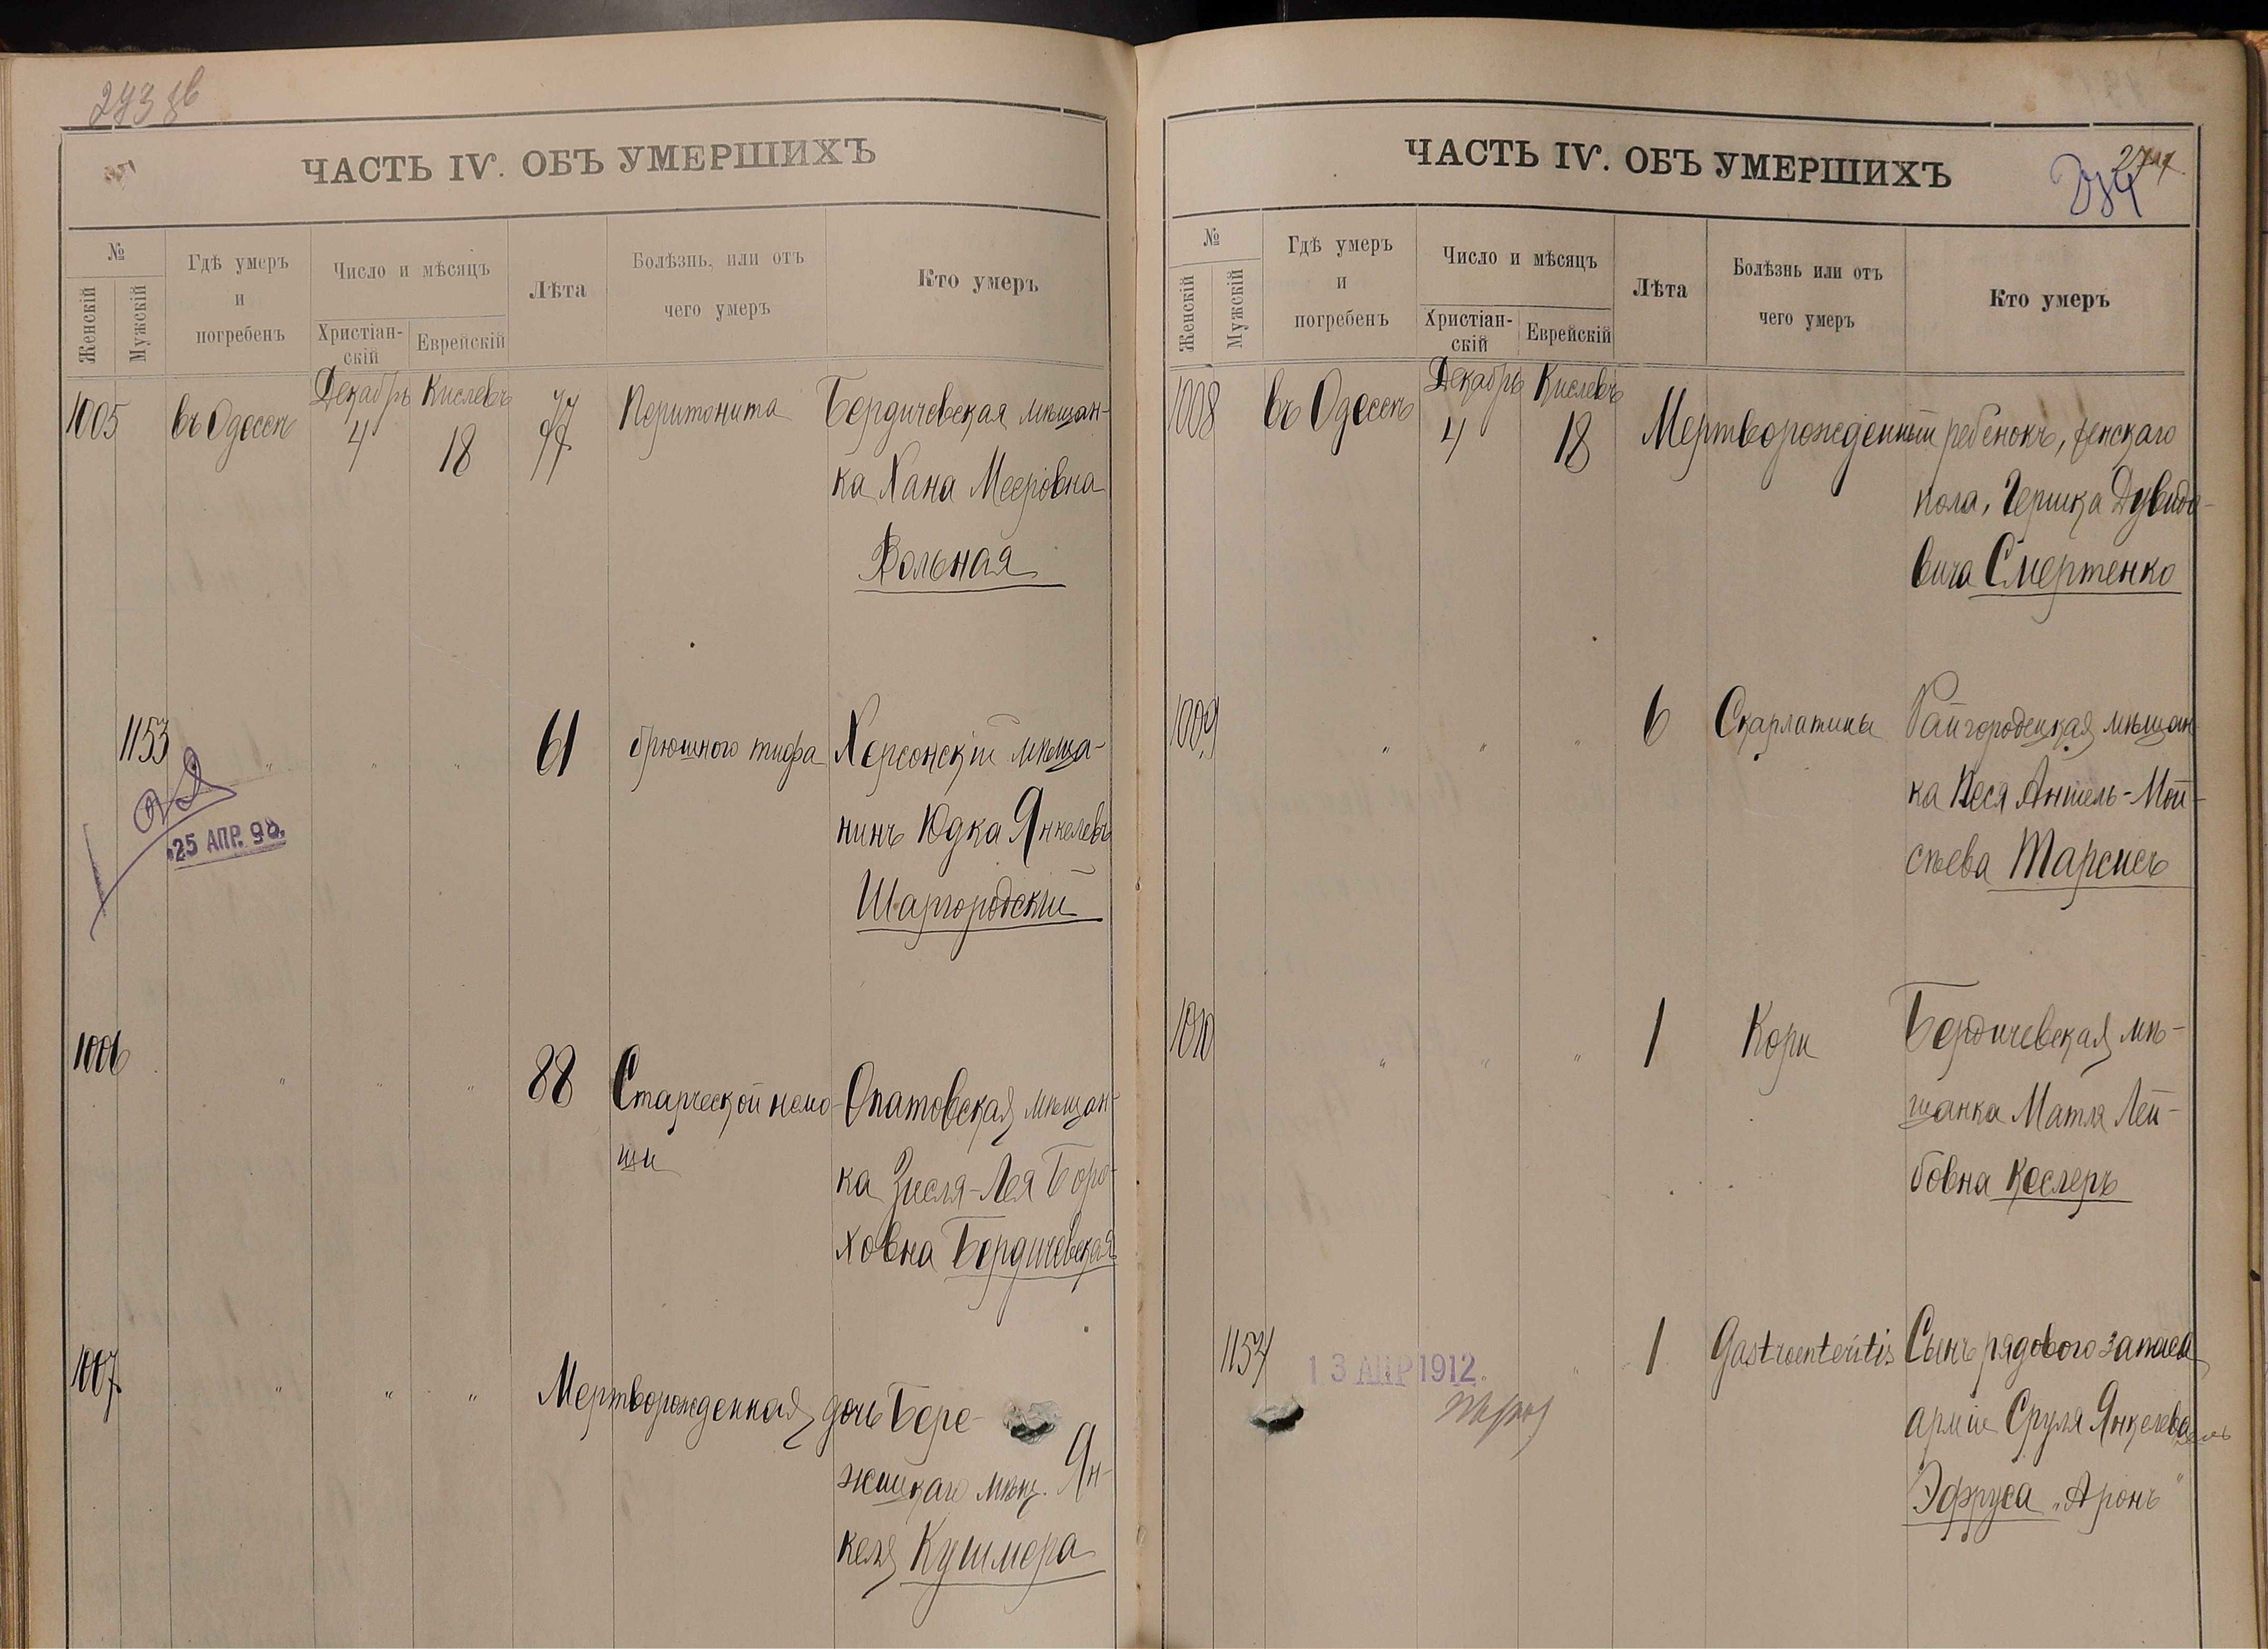 ЧАСТЬ IѴ. ОБЪ УМЕРШИХЪ
№
Женскій
Мужскій
Гдѣ умеръ
и
погребенъ
Число и мѣсяцъ
Христіан-
скій
Еврейскій
Лѣта
Болѣзнь, или отъ
чего умеръ
Кто умеръ
1005 въ Одессѣ Декабрь 4 Кислевъ 18 77 Перитонита Бердичевская мѣщан-
ка Хана Мееровна
Вольная
1153 " " " 61 брюшного тифа Херсонскій мѣща-
нинъ Юдка Янкелевъ
25 АПР. 9
Шаргородскій
1006 " " " 88 Старческой немо- Опатовская мѣщан-
щи
ка Зисля-Лея Боро-
ховна Бердичевская
1007 " " " Мертворожденная дочь Бере-
жицкаго мѣщ. Ян-
келя Кушмера
ЧАСТЬ IѴ. ОБЪ УМЕРШИХЪ
274
№
Женскій
Мужскій
Гдѣ умеръ
и
погребенъ
Число и мѣсяцъ
Христіан-
скій
Еврейскій
Лѣта
Болѣзнь или отъ
чего умеръ
Кто умеръ
1008 въ Одессѣ Декабрь 4 Кислевъ 18 Мертворожденный ребенокъ, женскаго
пола, Гершка Дувидо-
вича Смертенко
1009 " " " 6 Скарлатины Райгородецкая мѣщан-
ка Песя Аншель-Мои-
сѣева Тарсисъ
1010 " " " 1 Кори Бердичевская мѣ-
щанка Матля Лей-
бовна Кеслеръ
1154 13 АПР 1912 " 1 Gastroenteritis Сынъ рядового запаса
арміи Сруля Янкелева
Эфруса „Аронъ"